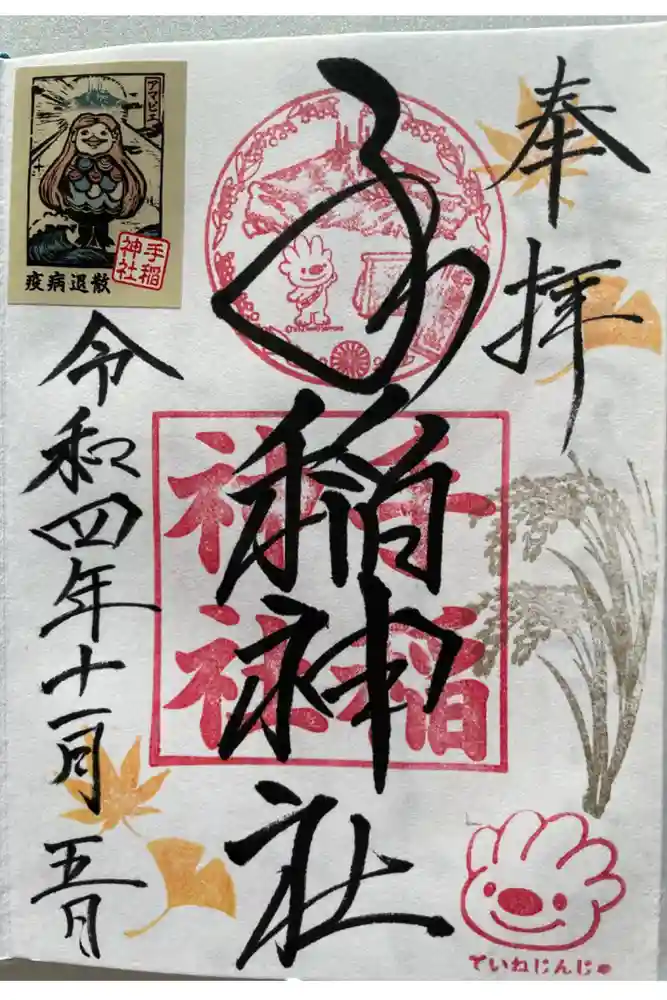 奉拝
手稲神社
手稲
神社
令和四年十一月五日
アマビエ
疫病退散
手稲
神社
ていねじんじゃ